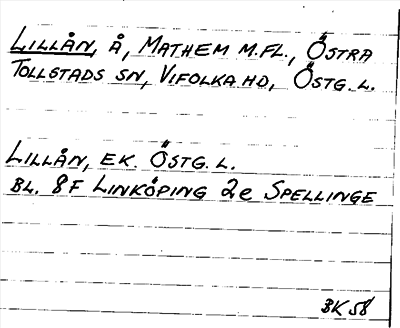 LILLÅN, Å, MATHEM M.FL., ÖSTRA
TOLLSTADS SN, VIFOLKA HD, ÖSTG. L.
LILLÅN, EK. ÖSTG. L.
BL. 8F LINKÖPING 2e SPELLINGE
BK 58